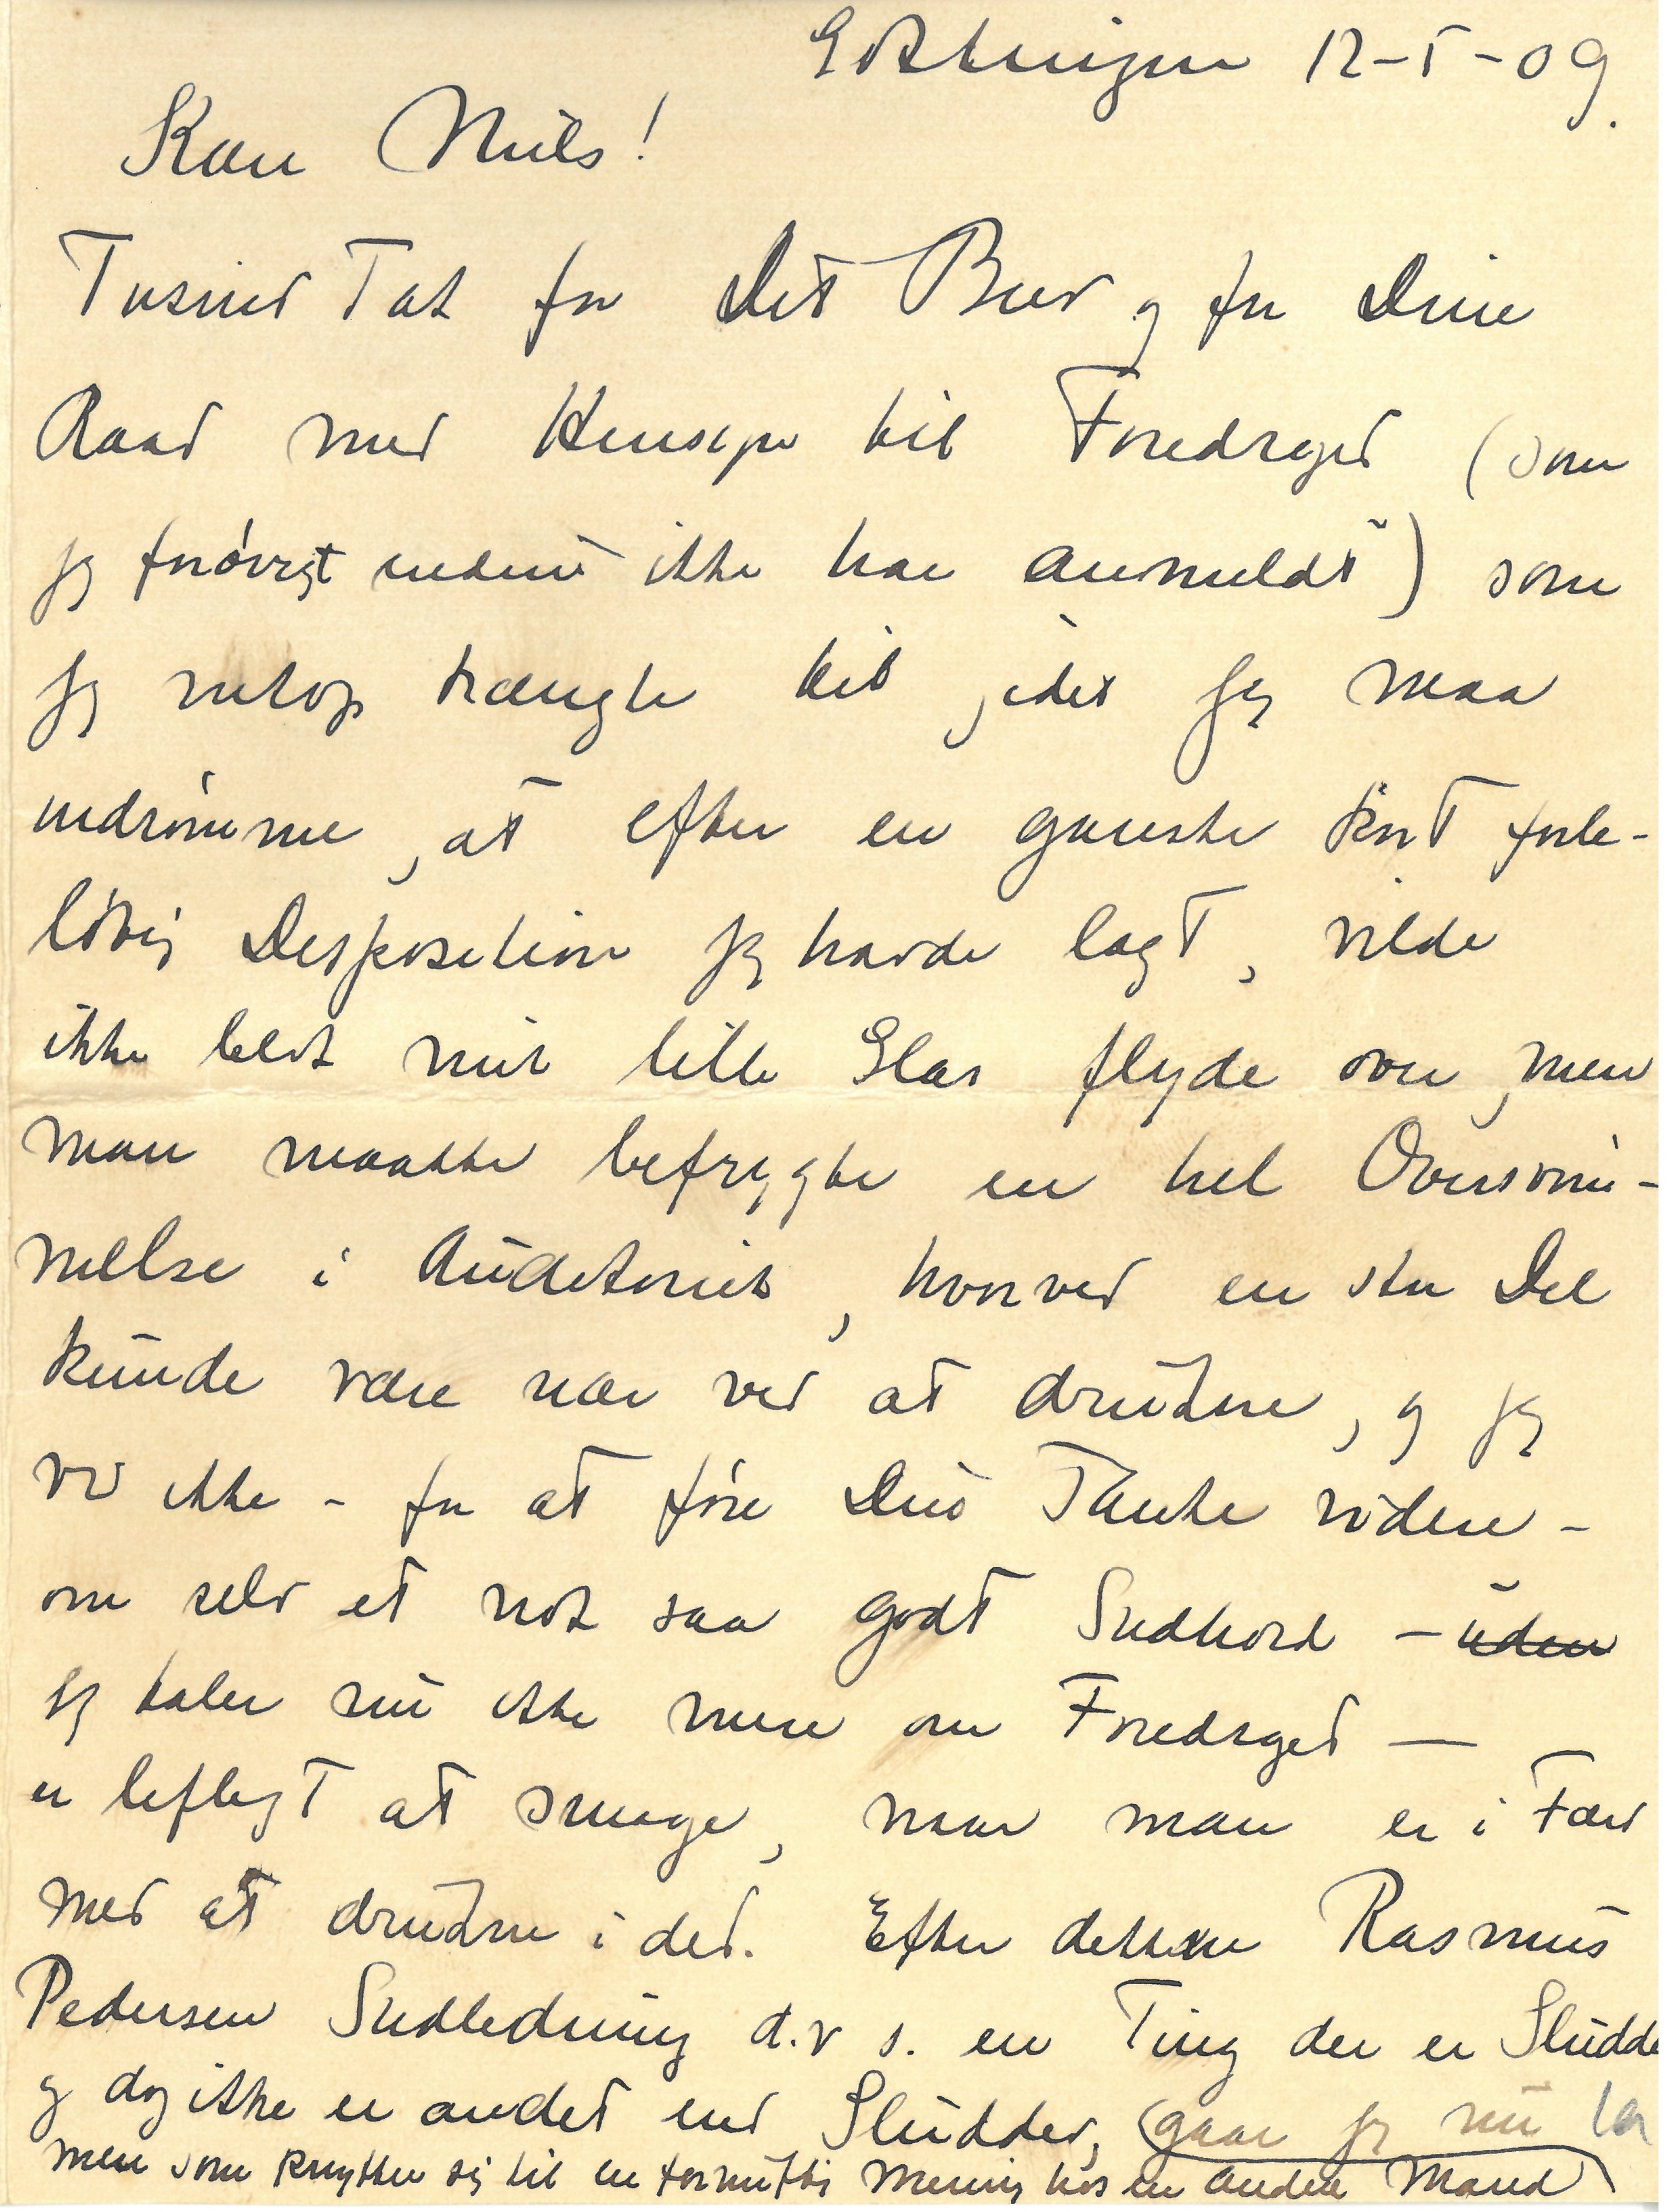 Göttingen 12-5-09.
Kære Niels!
Tusind Tak for Dit Brev og for Dine
Raad med Hensyn til Foredraget (som
jeg forövrigt endnu ikke har anmeldt) som
jeg netop trængte til, idet jeg maa
indrömme, at efter en ganske kort fore-
löbig Disposition jeg havde lagt, vilde
ikke blot mit lille Glas flyde over, men
man maatte befrygte en hel Oversvöm-
melse i Auditoriet, hvorved en stor Del
kunde være nær ved at drukne, og jeg
ved ikke - for at före Din Tanke videre -
om selv et nok saa godt
jeg taler nu ikke mere om Foredraget —
er lifligt at smage, naar man er i Færd
med at drukne i det. Efter denne Rasmus
Pedersen Indledning d.v.s. en Ting der er Sludder
og dog ikke er andet end Sludder, (gaar jeg nu
men som knytter sig til en fornuftig Mening hos en anden Mand)